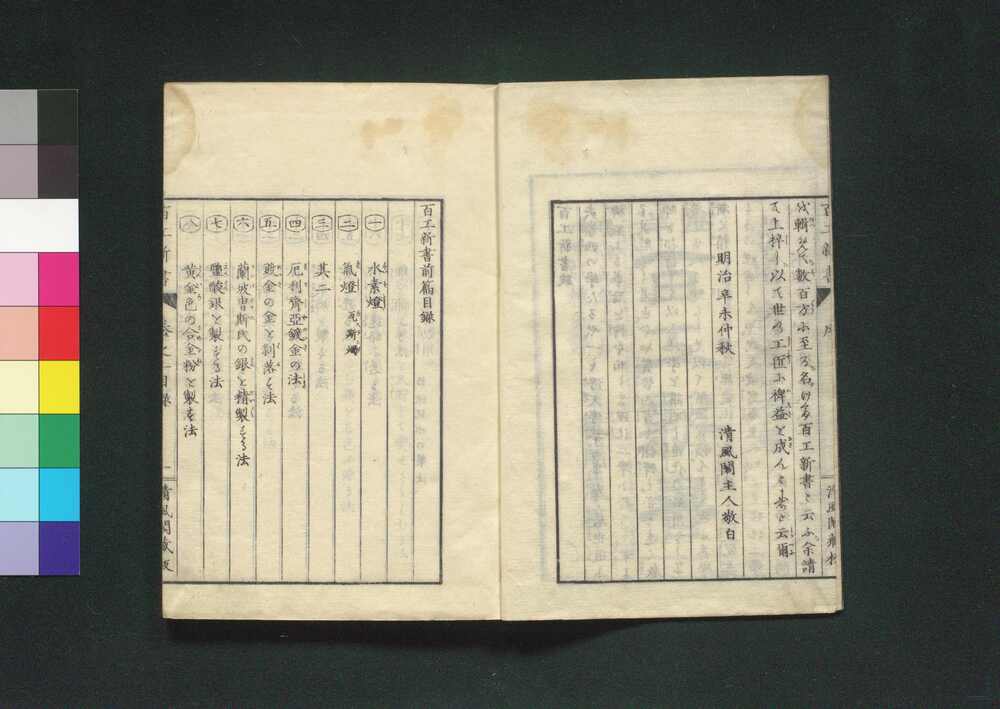 を輯めて数百方に至る名けて百工新書と云ふ余請
て上梓し以て世の工匠に裨益を成んと云爾
明治辛未仲秋
清風閣主人敬白
百工新書前篇目録
一 水素燈
二 氣燈 瓦斯燭
三 其二
四 厄利齊亞鍍金の法
五 鍍金の金を剥落す法
六 蘭坡曹斯氏の銀を精製する法
七 鹽酸銀を製する法
八 黄金色の合金粉を製す法
百工新書 巻之一目録 一 清風閣蔵板